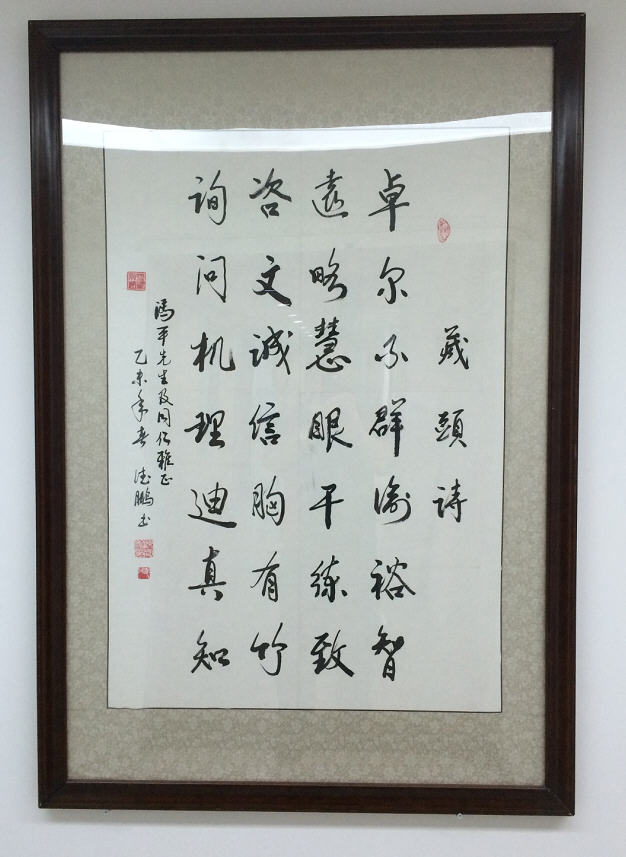 藏頭詩
卓尔不群裕智
遠略慧眼干练致
咨文诚信胸有竹
询问机理迪真知
馮平先生及同仁雅正
乙未年春 德鵬书